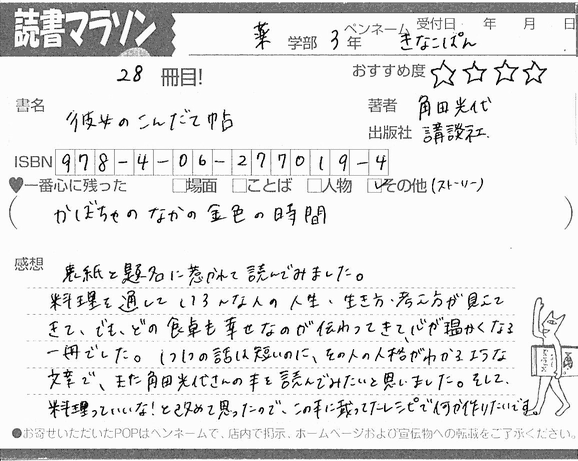 読書マラソン
薬 学部 3 年 ペンネーム きなこぱん 受付日 年 月 日
28 冊目! おすすめ度 ☆☆☆☆
書名 彼女のこんだて帖 著者 角田光代
出版社 講談社.
ISBN 978-4-06-277019-4
♥一番心に残った □場面 □ことば □人物 ☑その他(ストーリー)
(かぼちゃのなかの金色の時間)
感想 表紙と題名に惹かれて読んでみました。
料理を通していろんな人の人生・生き方・考え方が見えて
きて、でも、どの食卓も幸せなのが伝わってきて、心が温かくなる
一冊でした。1つ1つの話は短いのに、その人の人格がわかるような
文章で、また角田光代さんの本を読んでみたいと思いました。そして、
料理っていいな!と改めて思ったので、この本に載ってたレシピで何か作りたいです。
●お寄せいただいたPOPはペンネームで、店内で掲示、ホームページおよび宣伝物への転載をご了承ください。